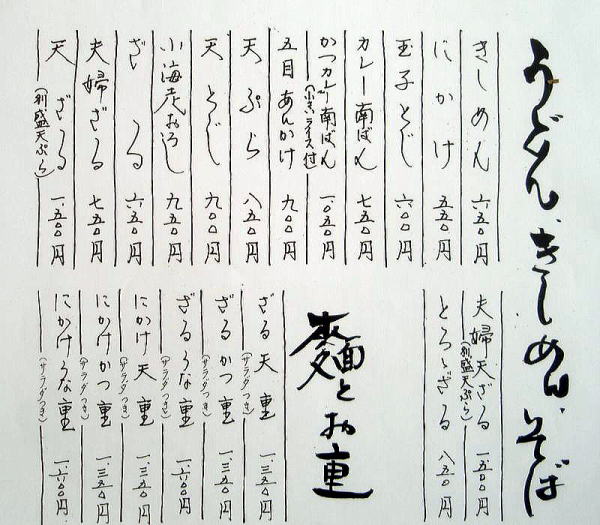 うどん、きしめん、そば
きしめん 六五〇円
にかけ 五五〇円
玉子とじ 六〇〇円
カレー南ばん 七五〇円
かつカレー南ばん(小さいライス付) 一、〇五〇円
五目あんかけ 九〇〇円
天ぷら 八五〇円
天とじ 九〇〇円
小海老おろし 九五〇円
ざる 六五〇円
夫婦ざる 七五〇円
天ざる(別盛天ぷら) 一、五〇〇円
夫婦天ざる(別盛天ぷら) 一、五〇〇円
とろゝざる 八五〇円
麺とお重
ざる天重(サラダつき) 一、三五〇円
ざるかつ重(サラダつき) 一、三五〇円
ざるうな重(サラダつき) 一、六〇〇円
にかけ天重(サラダつき) 一、三五〇円
にかけかつ重(サラダつき) 一、三五〇円
にかけうな重(サラダつき) 一、六〇〇円